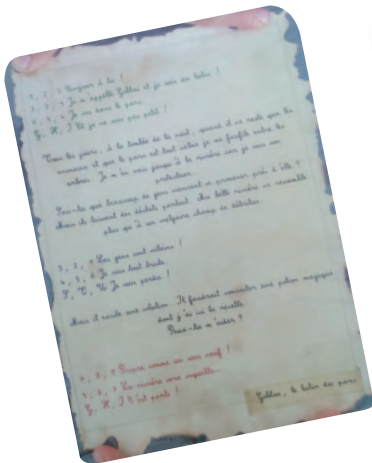 1, 2, 3 Bonjour à toi !
4, 5, 6 Je m'appelle Gobleu et je suis un lutin !
7, 8, 9 Je vis dans le parc,
G, H, I Et je suis pas petit !
Tous les jours, à la tombée de la nuit, quand il ne reste que les
animaux et que le parc est tout calme je me faufile entre les
arbres. Je m'en vais jusqu'à la rivière dont je suis son
protecteur.
Sais-tu que beaucoup de gens viennent se promener près d'elle ?
Mais ils laissent des déchets partout. Ma belle rivière ne ressemble
plus qu'à un vulgaire champ de détritus.
1, 2, 3 Les gens sont vilains !
4, 5, 6 Je suis tout triste
S, T, U Je suis perdu !
Mais il existe une solution. Il faudrait concocter une potion magique
dont j'ai ici la recette.
Peux-tu m'aider ?
7, 8, 9 Propre comme un sou neuf !
4, 5, 6 La rivière sera impeccable...
G, H, I C'est parti !
Gobleu, le lutin du parc